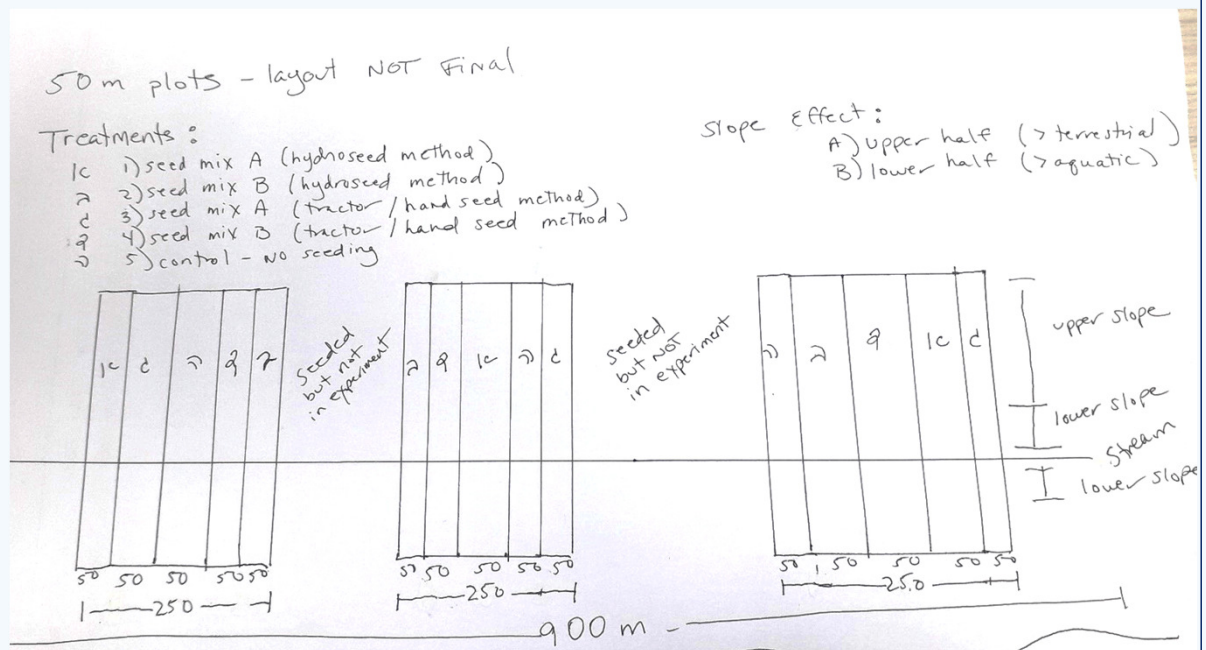 50m plots - layout NOT Final
Treatments:
א 1) seed mix A (hydroseed method)
ב 2) seed mix B (hydroseed method)
ג 3) seed mix A (tractor/hand seed method)
ד 4) seed mix B (tractor/hand seed method)
ה 5) control - NO seeding
Slope Effect:
A) upper half (> terrestrial)
B) lower half (> aquatic)
א ג ה ד ב
seeded
but not
in experiment
ב ד א ה ג
seeded
but NOT
in experiment
ה ב ד א ג
upper slope
lower slope
stream
lower slope
50 50 50 50 50
250
50 50 50 50 50
250
50 50 50 50 50
250
900 m